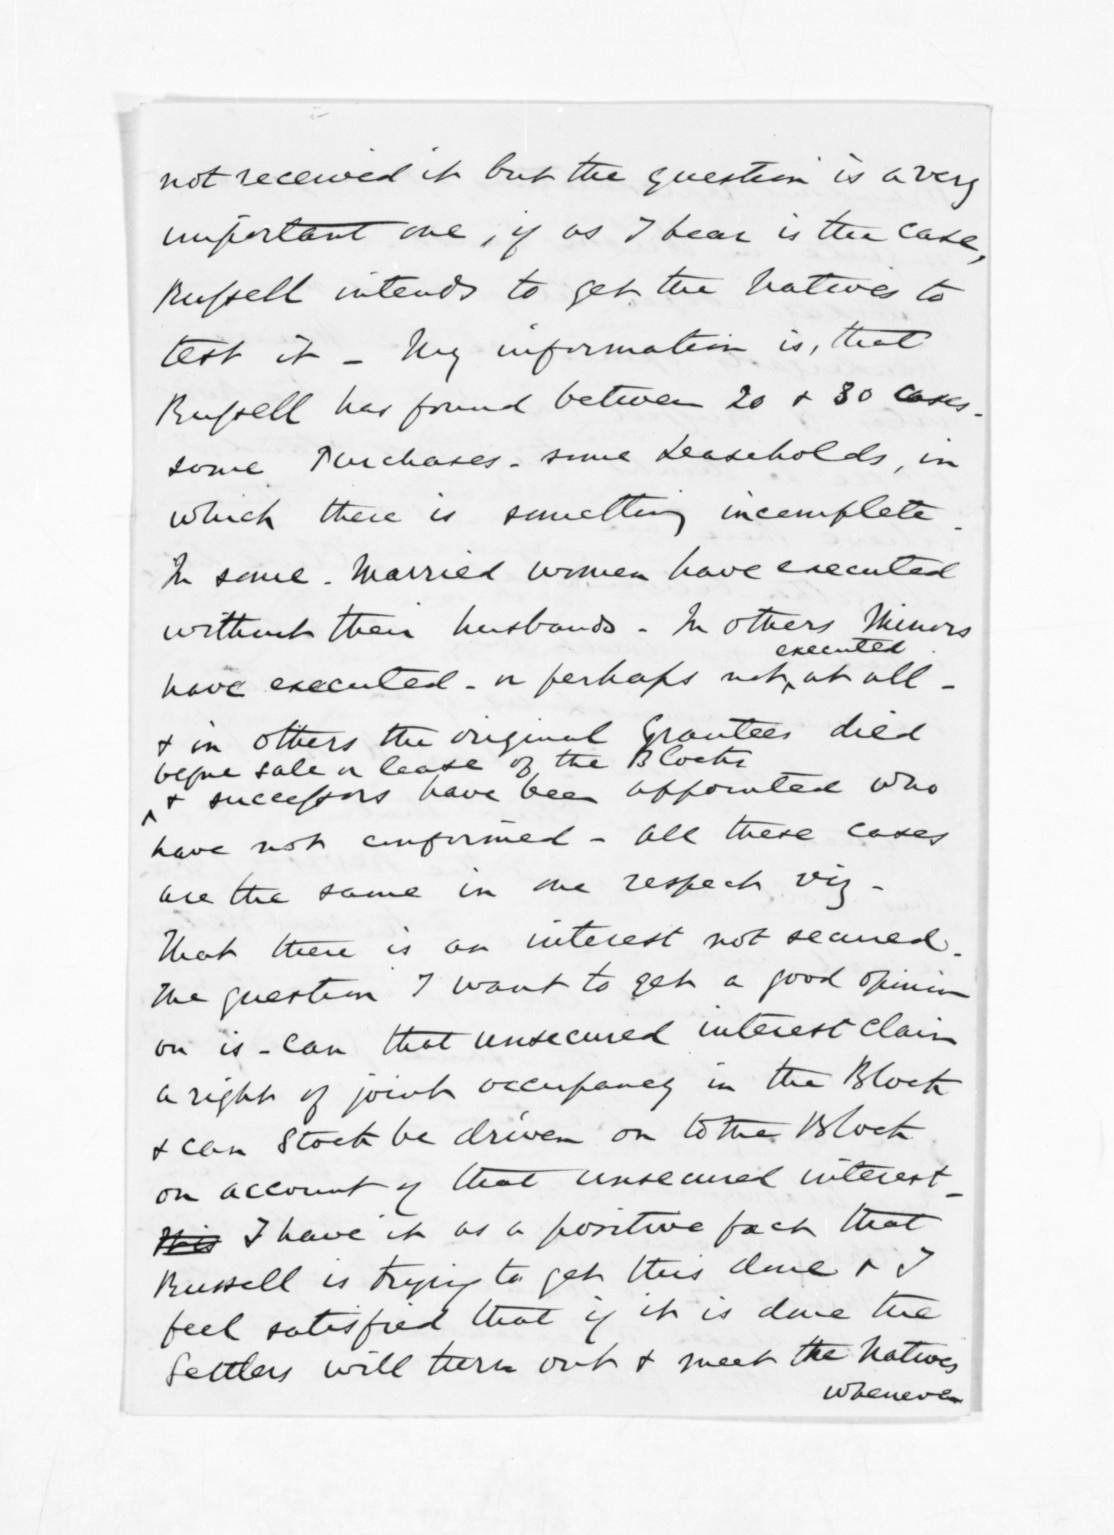 not received it but the question is a very
important one, if as I hear is the case,
Russell intends to get the Natives to
test it - My information is, that
Russell has found between 20 & 30 cases -
some Purchases - some Leaseholds, in
which there is something incomplete.
In some - Married women have executed
without their husbands - In others Minors
executed
have executed - or perhaps not at all -
& in others the original Grantees died
before sale or lease of the Blocks
& successors have been appointed who
have not confirmed - all these cases
are the same in one respect viz -
That there is an interest not secured -
The question I want to get a good opinion
on is - Can that unsecured interest claim
a right of joint occupancy in the Block
& can Stock be driven on to the Block
on account of that unsecured interest -
This I have it as a positive fact that
Russell is trying to get this done & I
feel satisfied that if it is done the
Settlers will turn out & meet the Natives
whenever